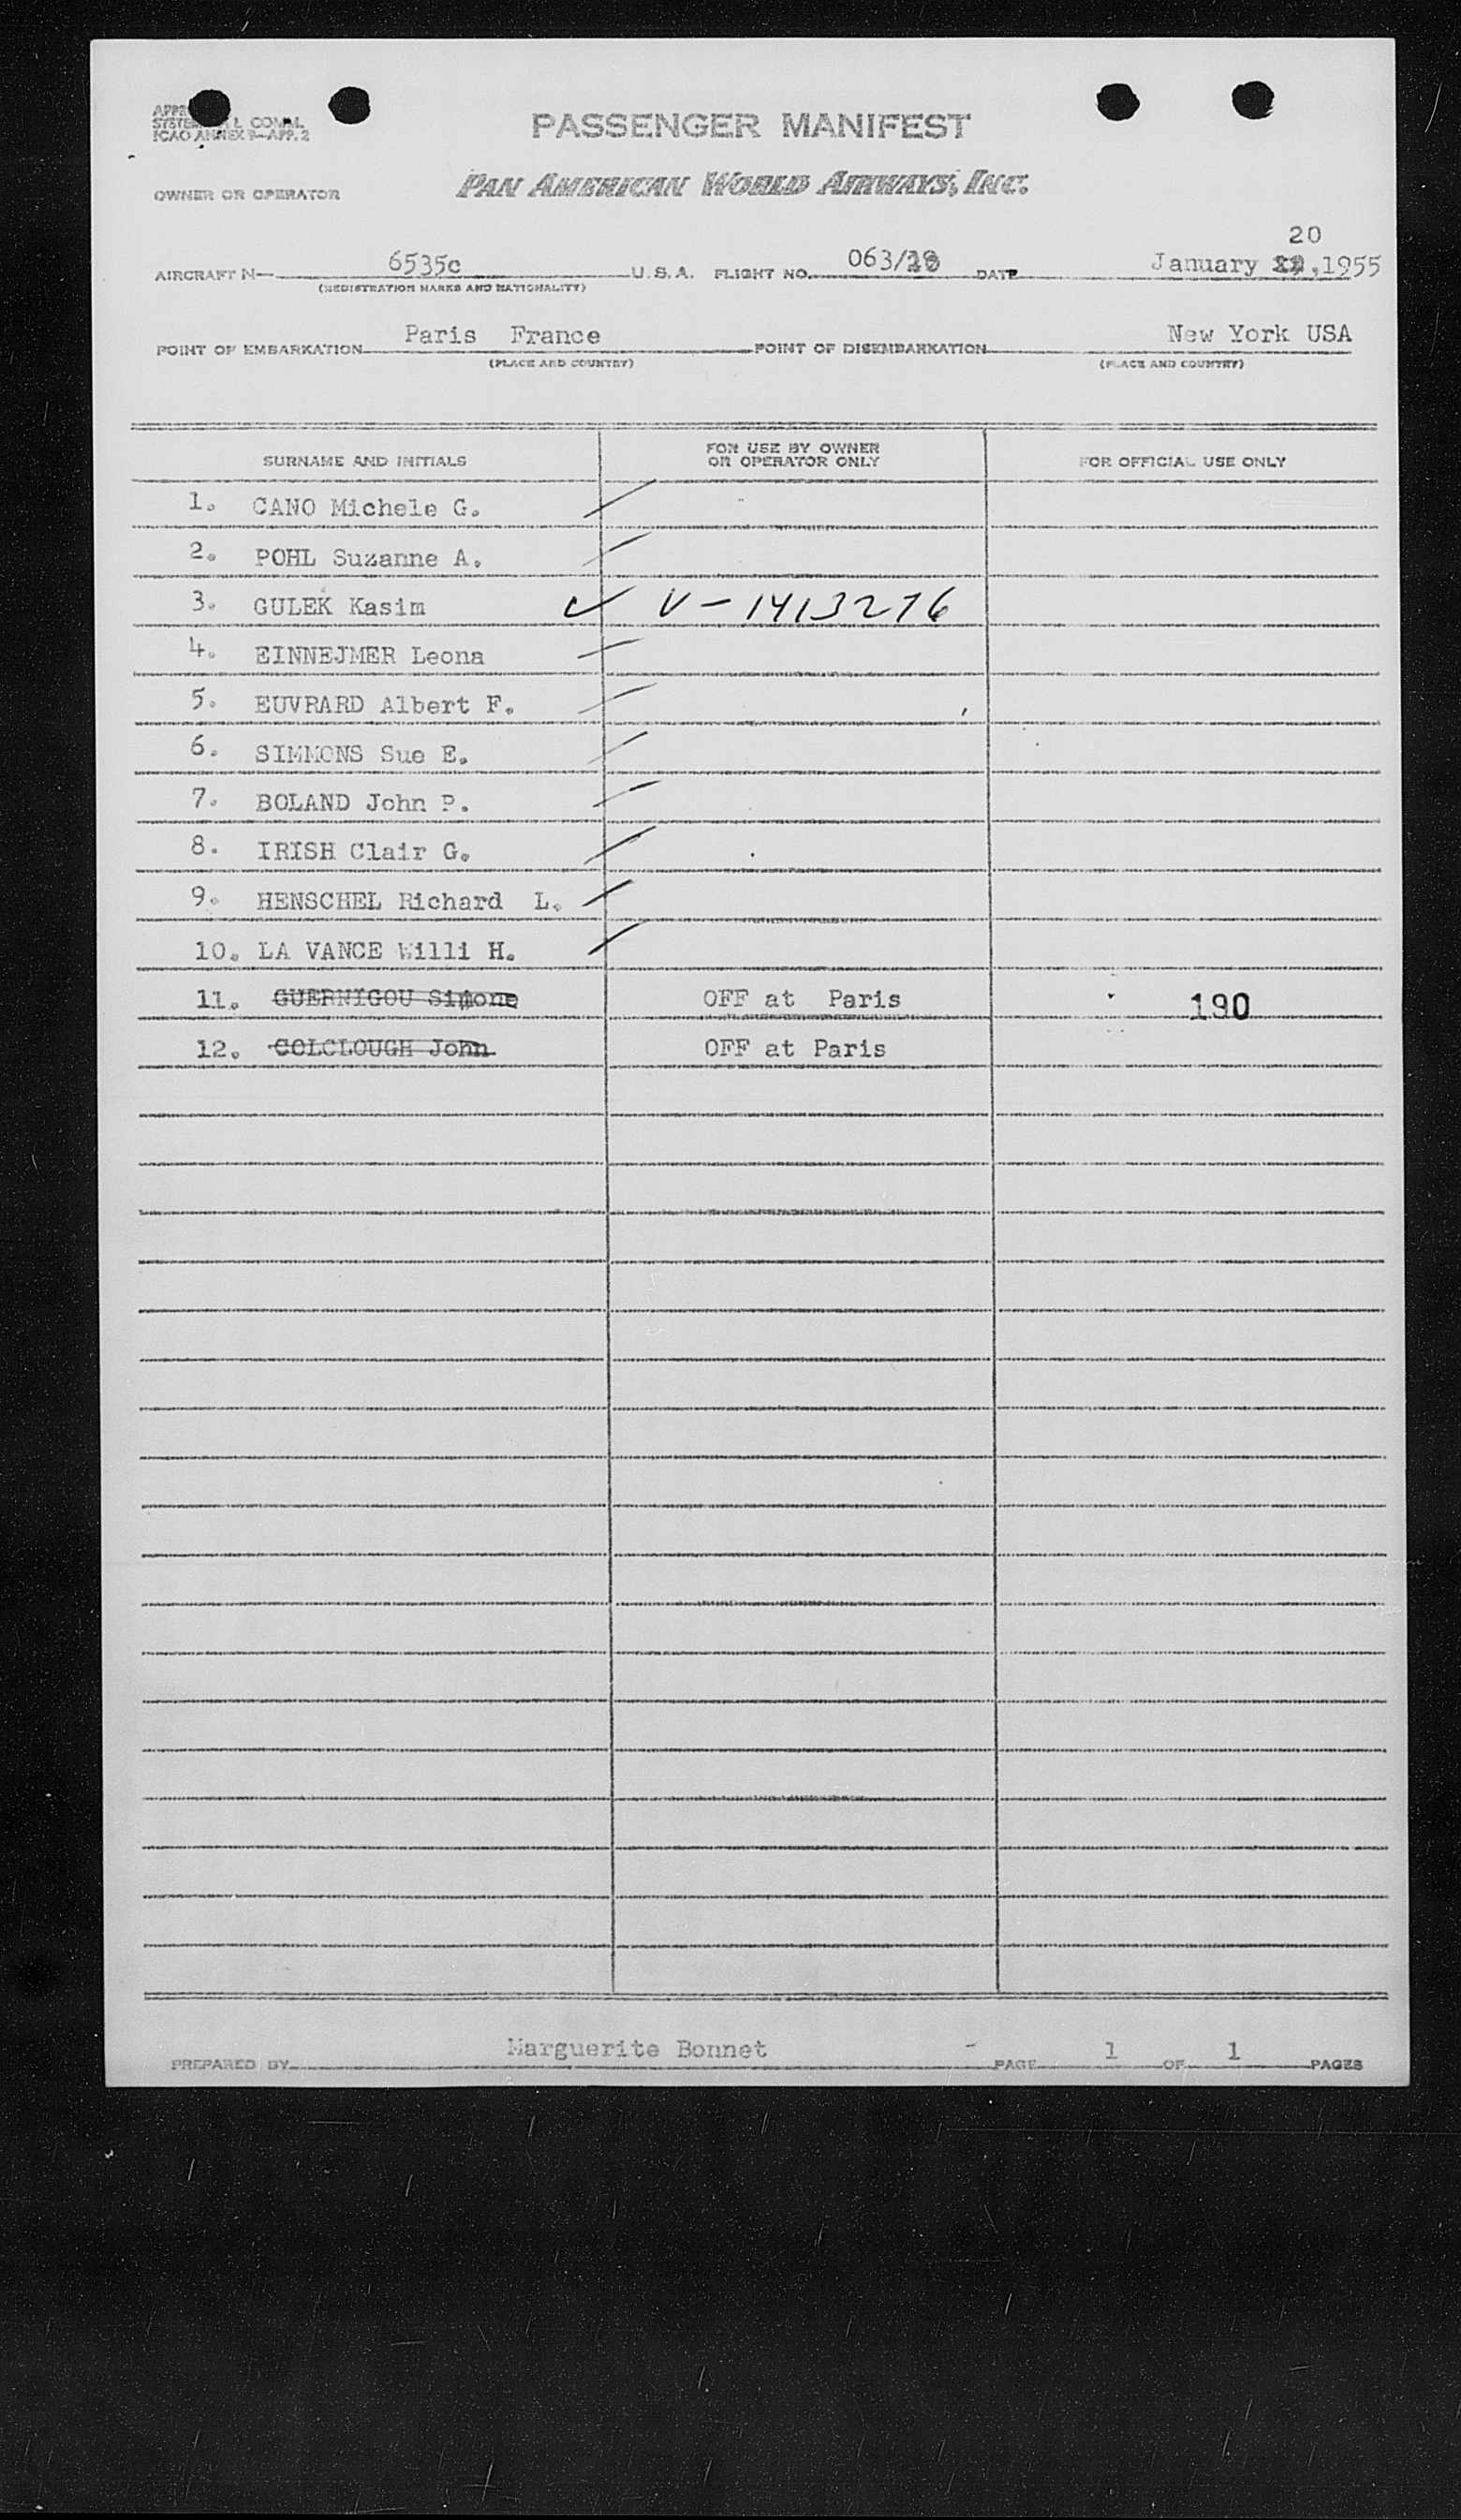 SYSTEM L COM'L
ICAO ANNEX 9—APP. 2
PASSENGER MANIFEST
OWNER OR OPERATOR PAN AMERICAN WORLD AIRWAYS, INC.
20
AIRCRAFT N— 6535c U. S. A. FLIGHT NO. 063/ DATE January ,1955
(REGISTRATION MARKS AND NATIONALITY)
POINT OF EMBARKATION Paris France POINT OF DISEMBARKATION New York USA
(PLACE AND COUNTRY) (PLACE AND COUNTRY)
SURNAME AND INITIALS FOR USE BY OWNER OR OPERATOR ONLY FOR OFFICIAL USE ONLY
1. CANO Michele G.
2. POHL Suzanne A.
3. GULEK Kasim V-1413276
4. EINNEJMER Leona
5. EUVRARD Albert F.
6. SIMMONS Sue E.
7. BOLAND John P.
8. IRISH Clair G.
9. HENSCHEL Richard L.
10. LA VANCE Willi H.
11. GUERNIGOU Simone OFF at Paris 190
12. COLCLOUGH John OFF at Paris
PREPARED BY Marguerite Bonnet PAGE 1 OF 1 PAGES